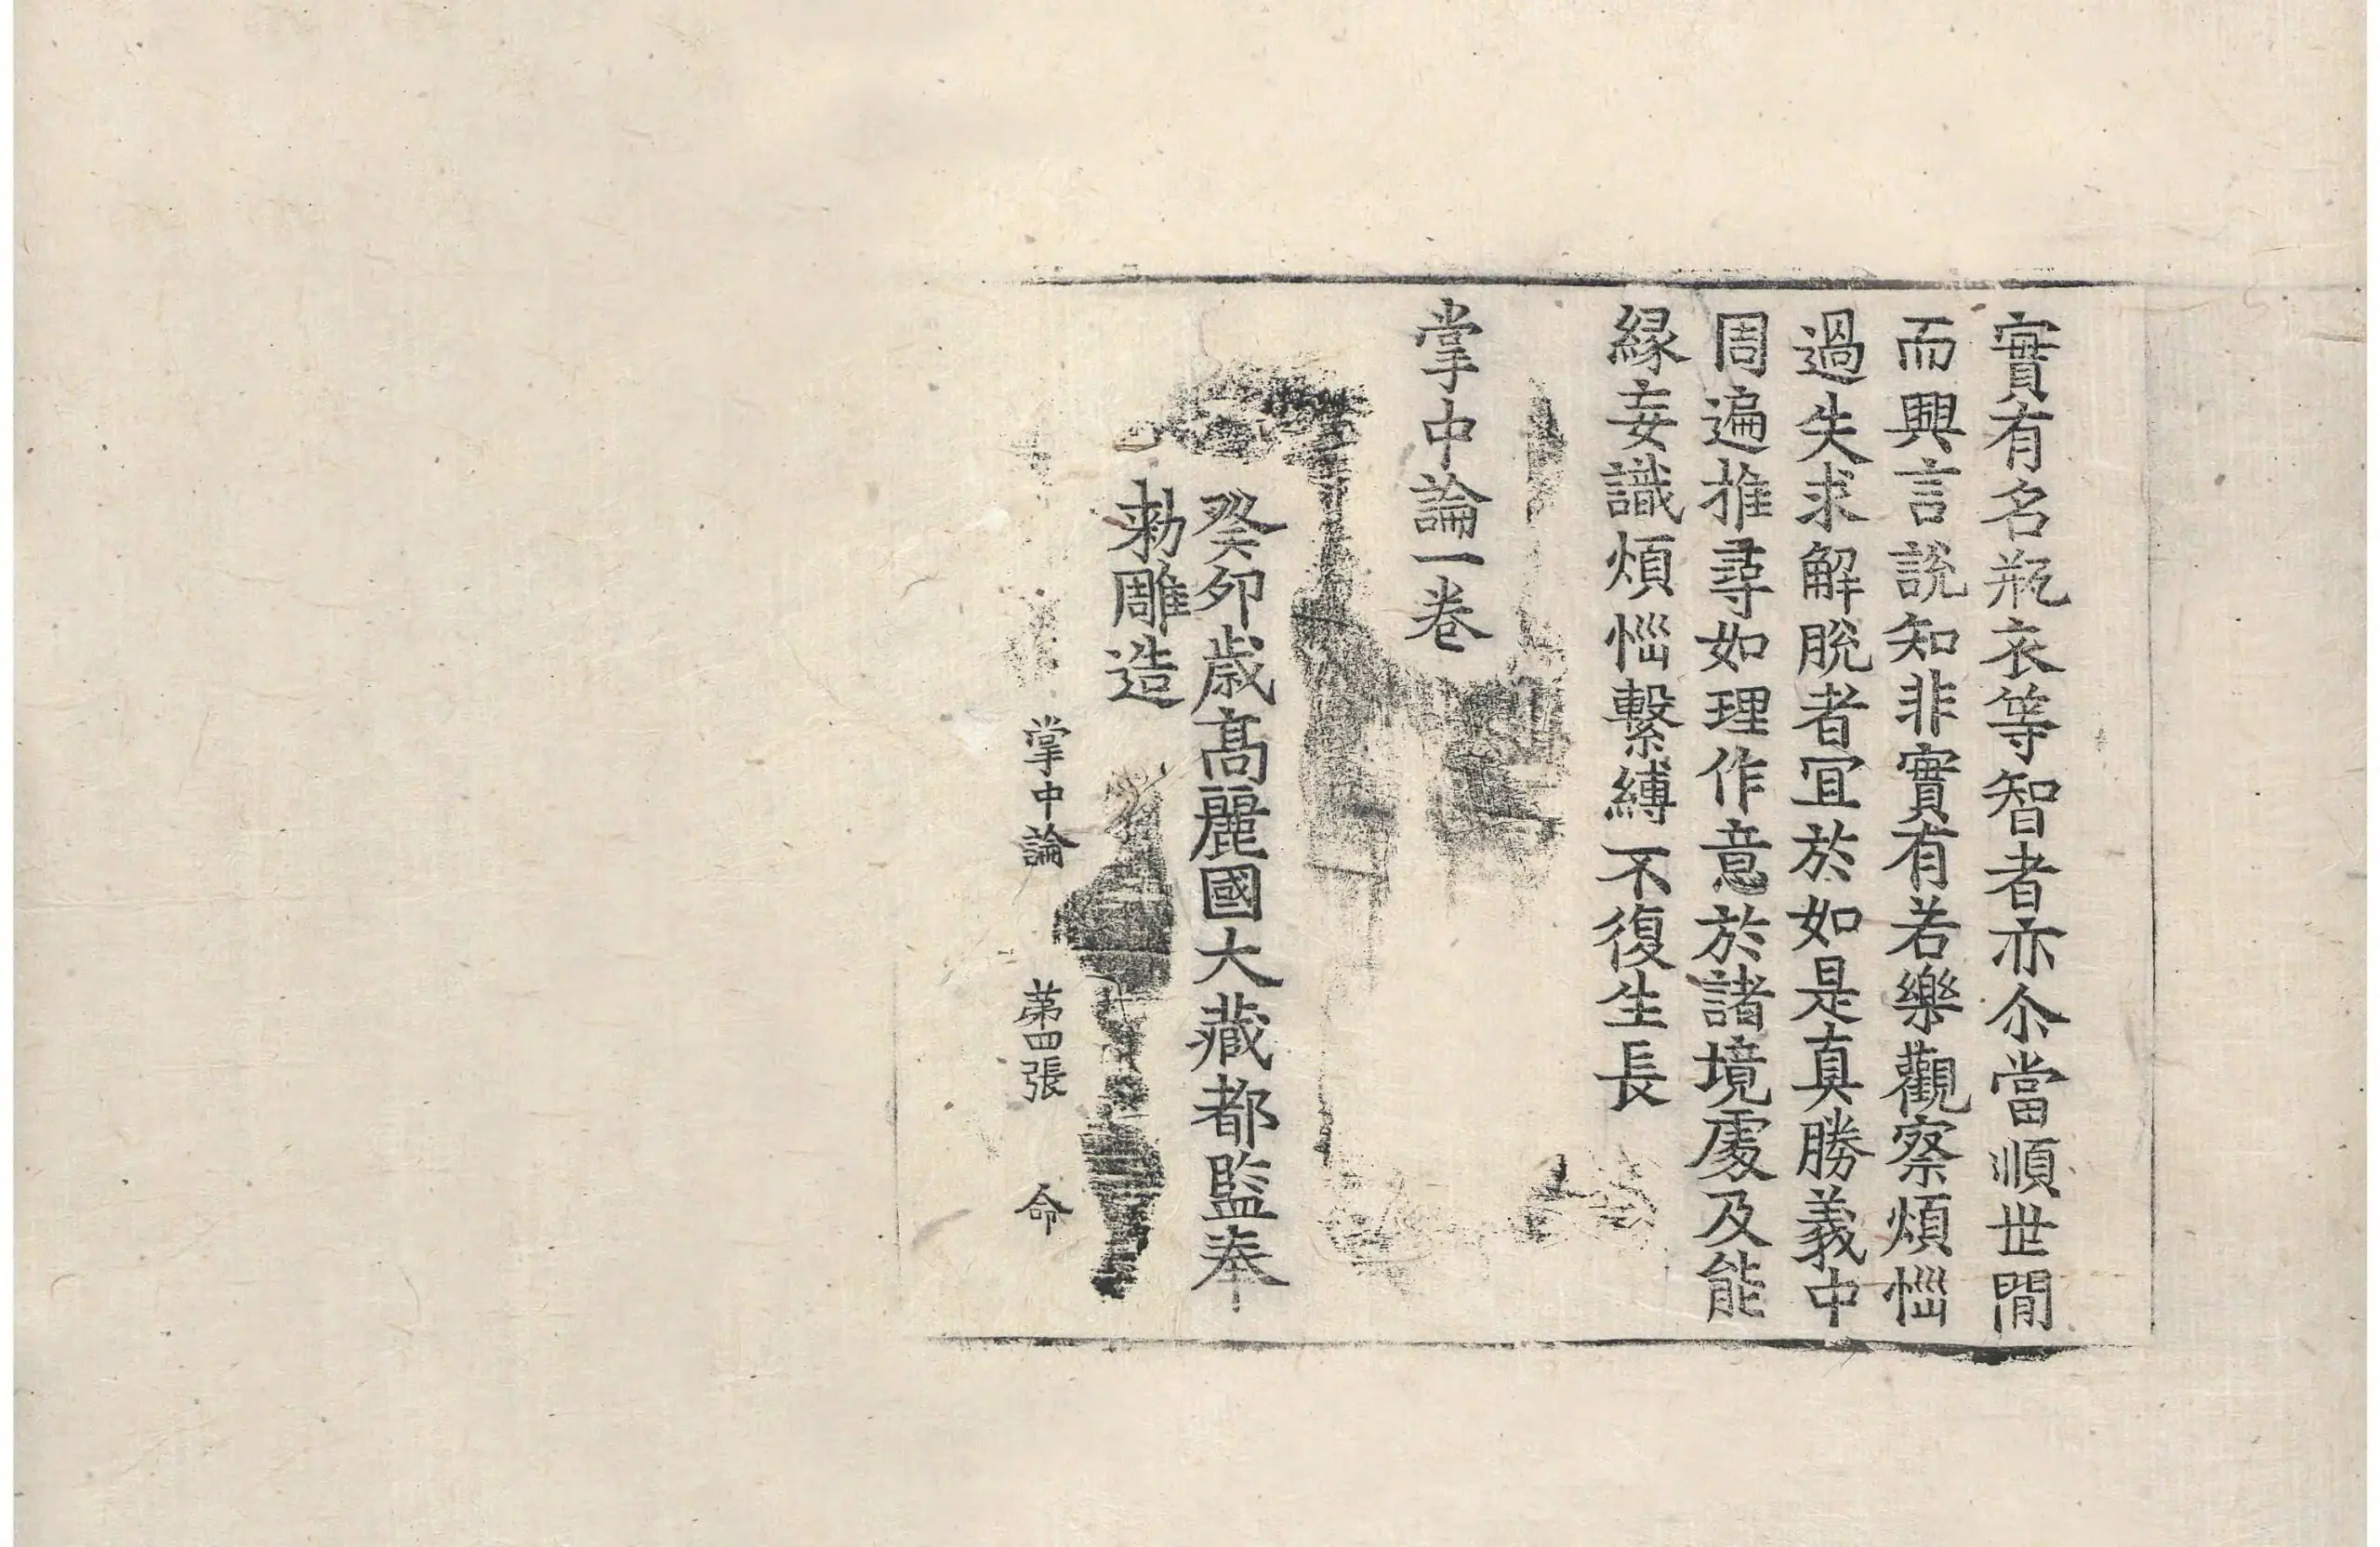 實有名瓶衣等智者亦尒當順世間
而興言說知非實有若樂觀察煩惱
過失求解脫者冝於如是真勝義中
周遍推尋如理作意於諸境處及能
緣妄識煩惱繫縛不復生長
掌中論一卷
癸卯歲高麗國大藏都監奉
勑雕造
掌中論 第四張 命